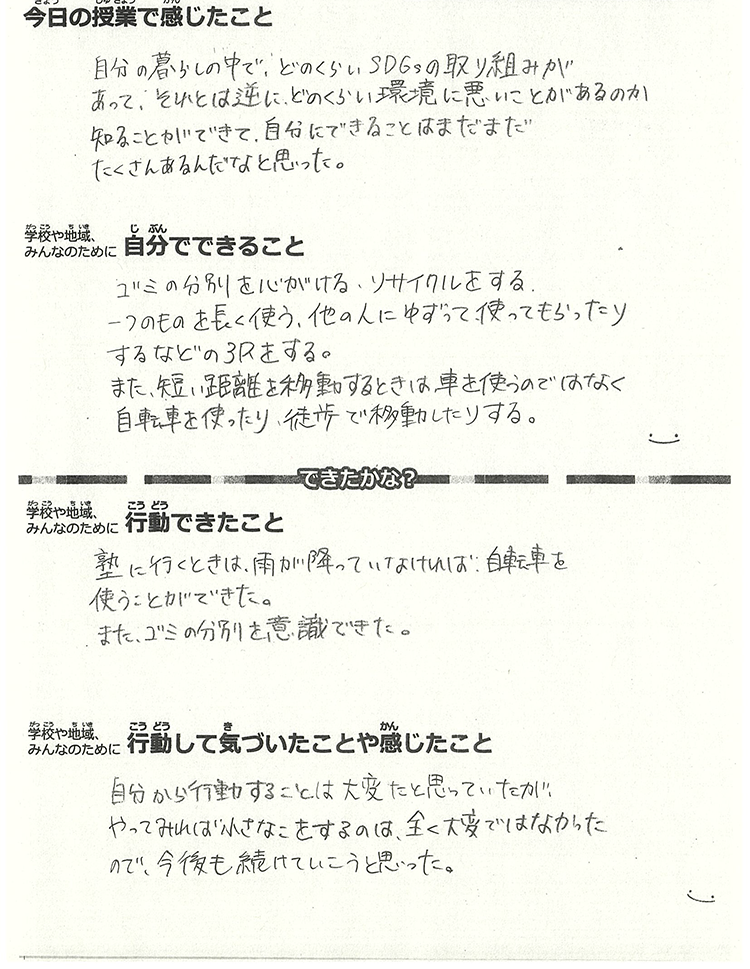 今日の授業で感じたこと
自分の暮らしの中で、どのくらいSDGsの取り組みが
あって、それとは逆に、どのくらい環境に悪いことがあるのか
知ることができて、自分にできることはまだまだ
たくさんあるんだなと思った。
学校や地域、みんなのために 自分でできること
ゴミの分別を心がける、リサイクルをする、
一つのものを長く使う、他の人にゆずって使ってもらったり
するなどの3Rをする。
また、短い距離を移動するときは、車を使うのではなく
自転車を使ったり、徒歩で移動したりする。
できたかな?
学校や地域、みんなのために 行動できたこと
塾に行くときは、雨が降っていなければ、自転車を
使うことができた。
また、ゴミの分別を意識できた。
学校や地域、みんなのために 行動して気づいたことや感じたこと
自分から行動することは大変だと思っていたが、
やってみれば小さなこをするのは、全く大変ではなかった
ので、今後も続けていこうと思った。